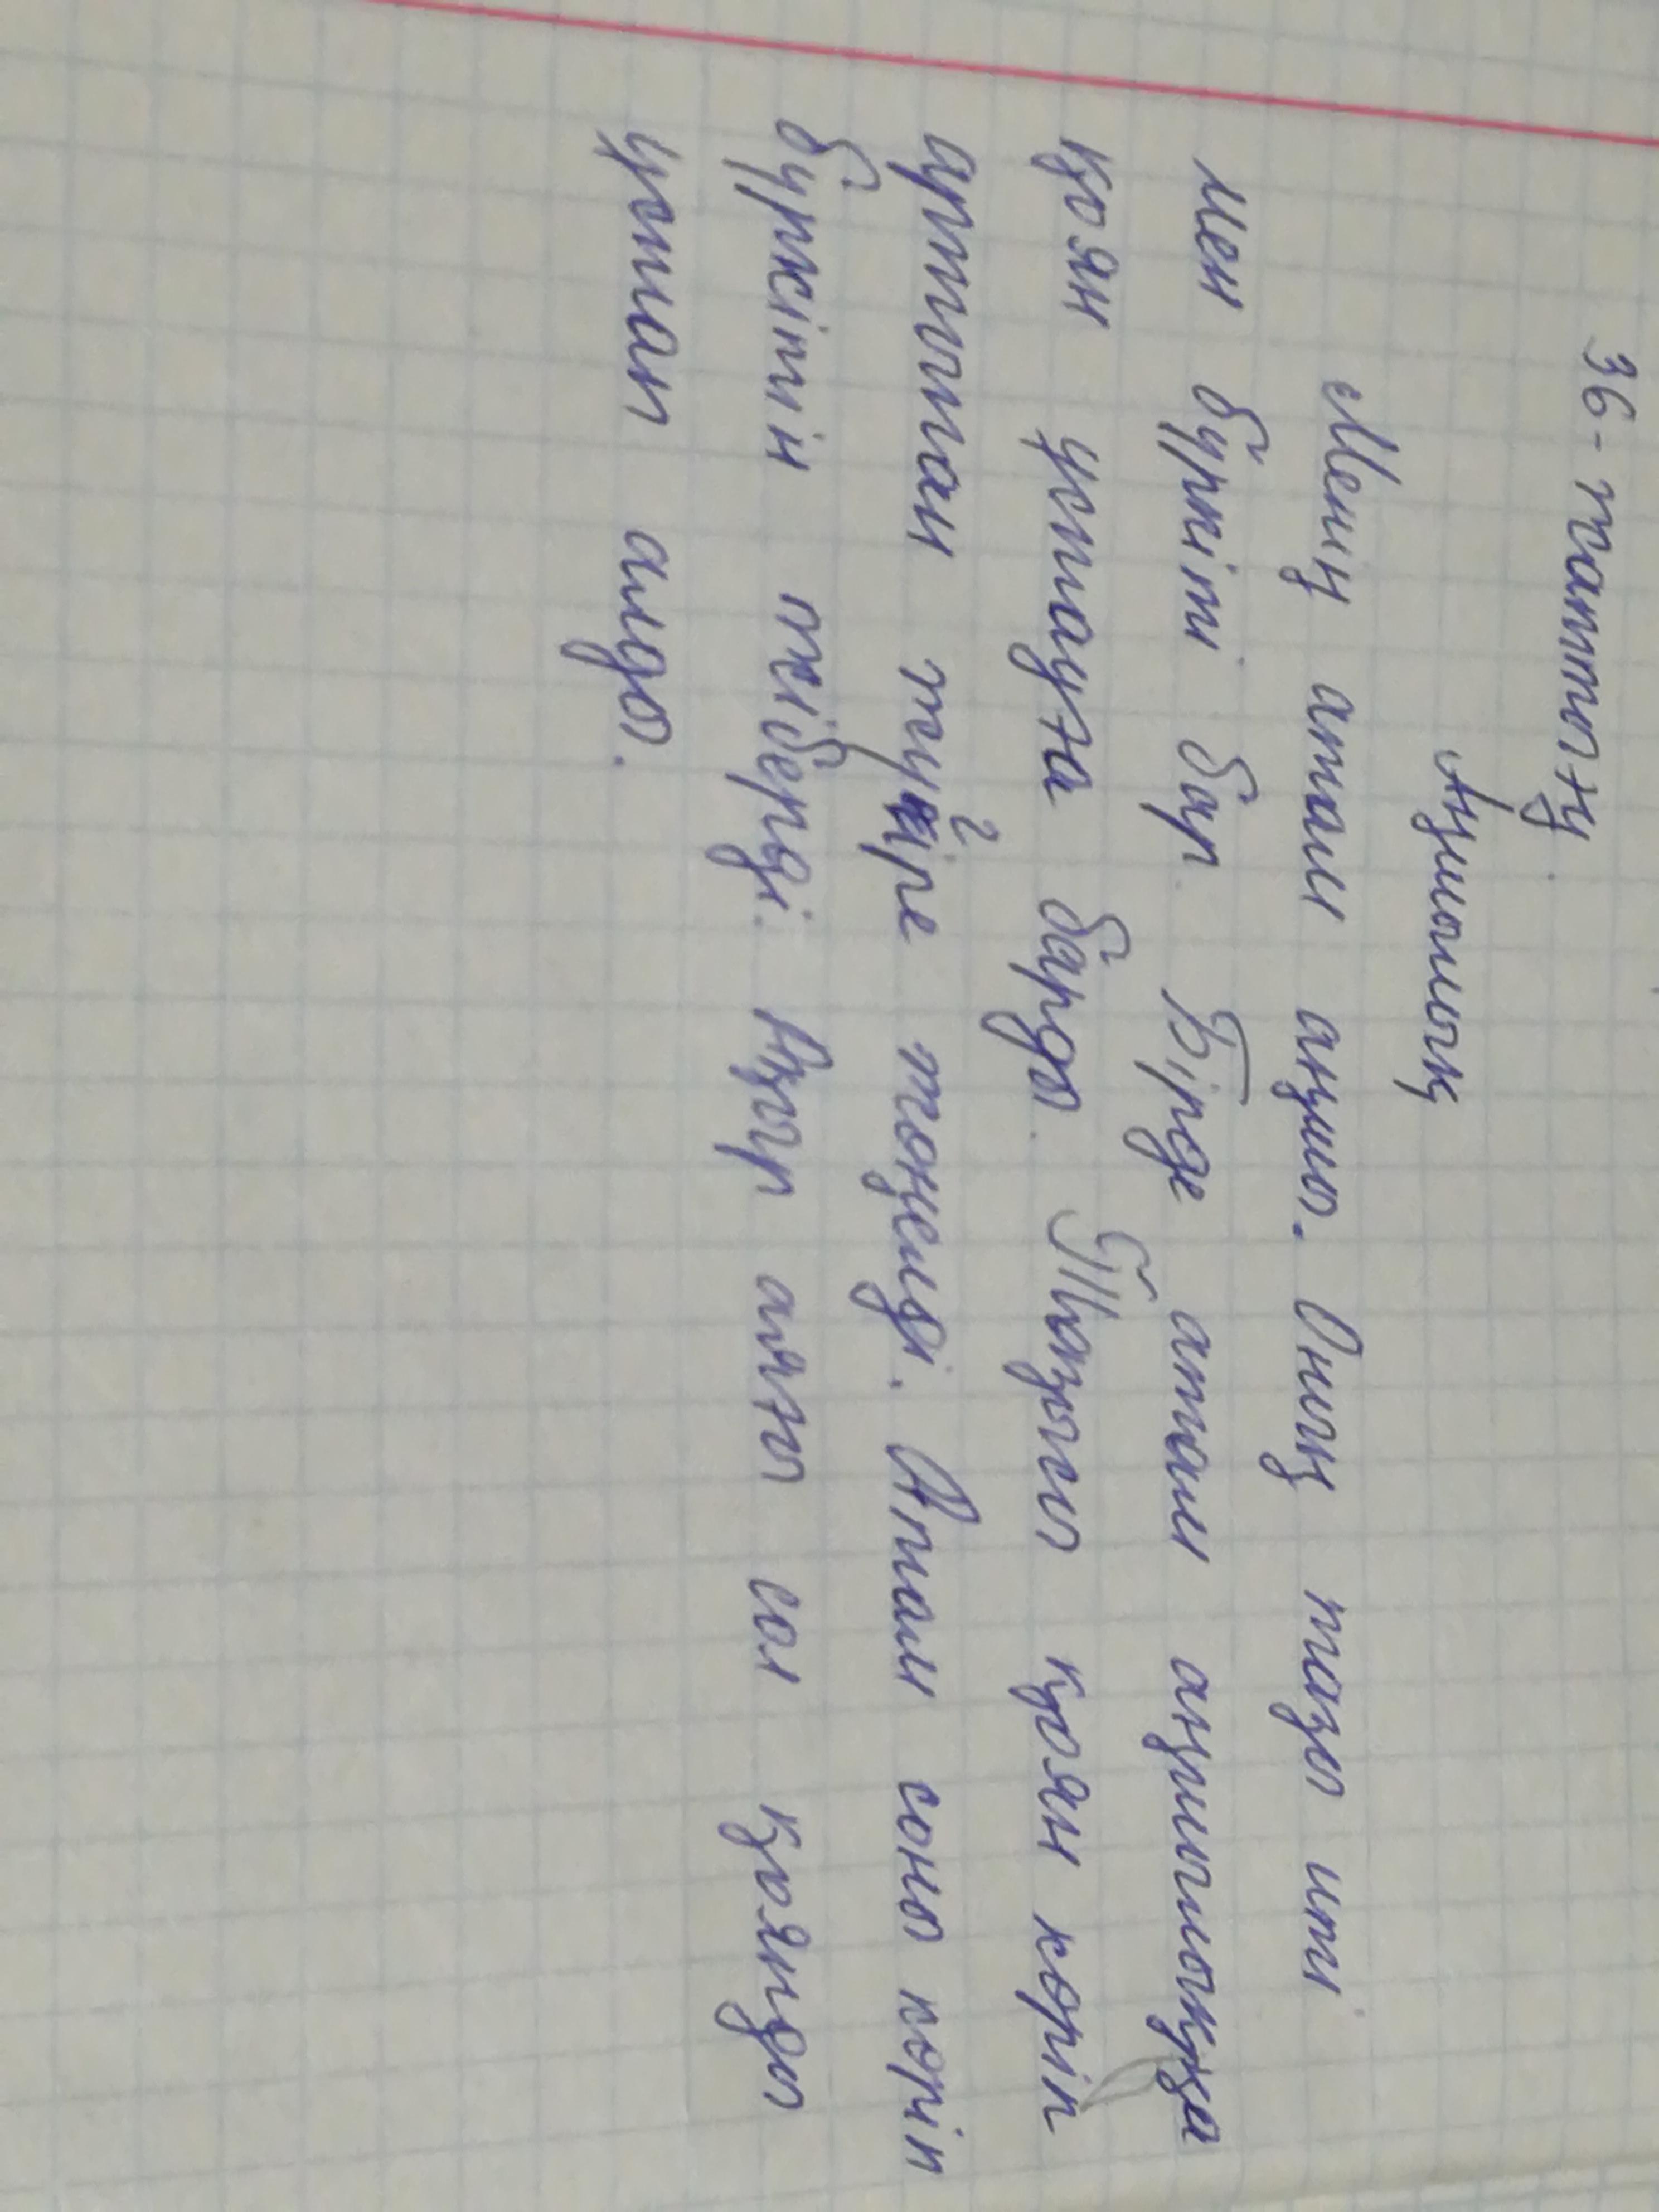 36-жаттығу.
Аңшылық
Менің атам аңшы. Оның тазы иті
мен бүркіті бар. Бірде атам аңшылыққа
қоян ұстауға барды. Тазысы қоян көріп
артынан жүгіре жөнелді. Атам соны көріп
бүркітін жіберді. Ақыр аяғы сол қоянды
ұстап алды.